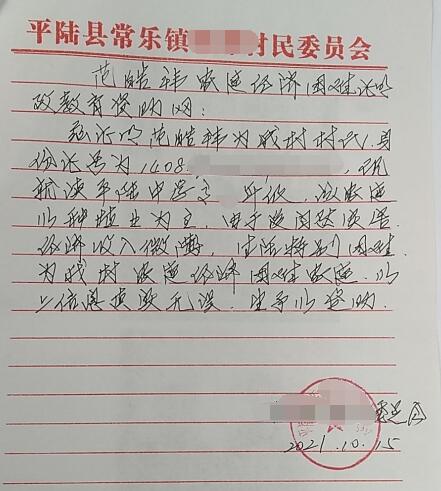 平陆县常乐镇 村民委员会
范皓玮家庭经济困难证明
致教育资助网：
兹证明范皓玮为我村村民，身
份证号为1408. ，现
就读平陆中学 年级，该家庭
以种植业为主，由于受自然灾害，
经济收入微薄，生活特别困难，
为我村家庭经济困难家庭，以
上信息真实无误，望予以资助。
委员会
2021.10.15